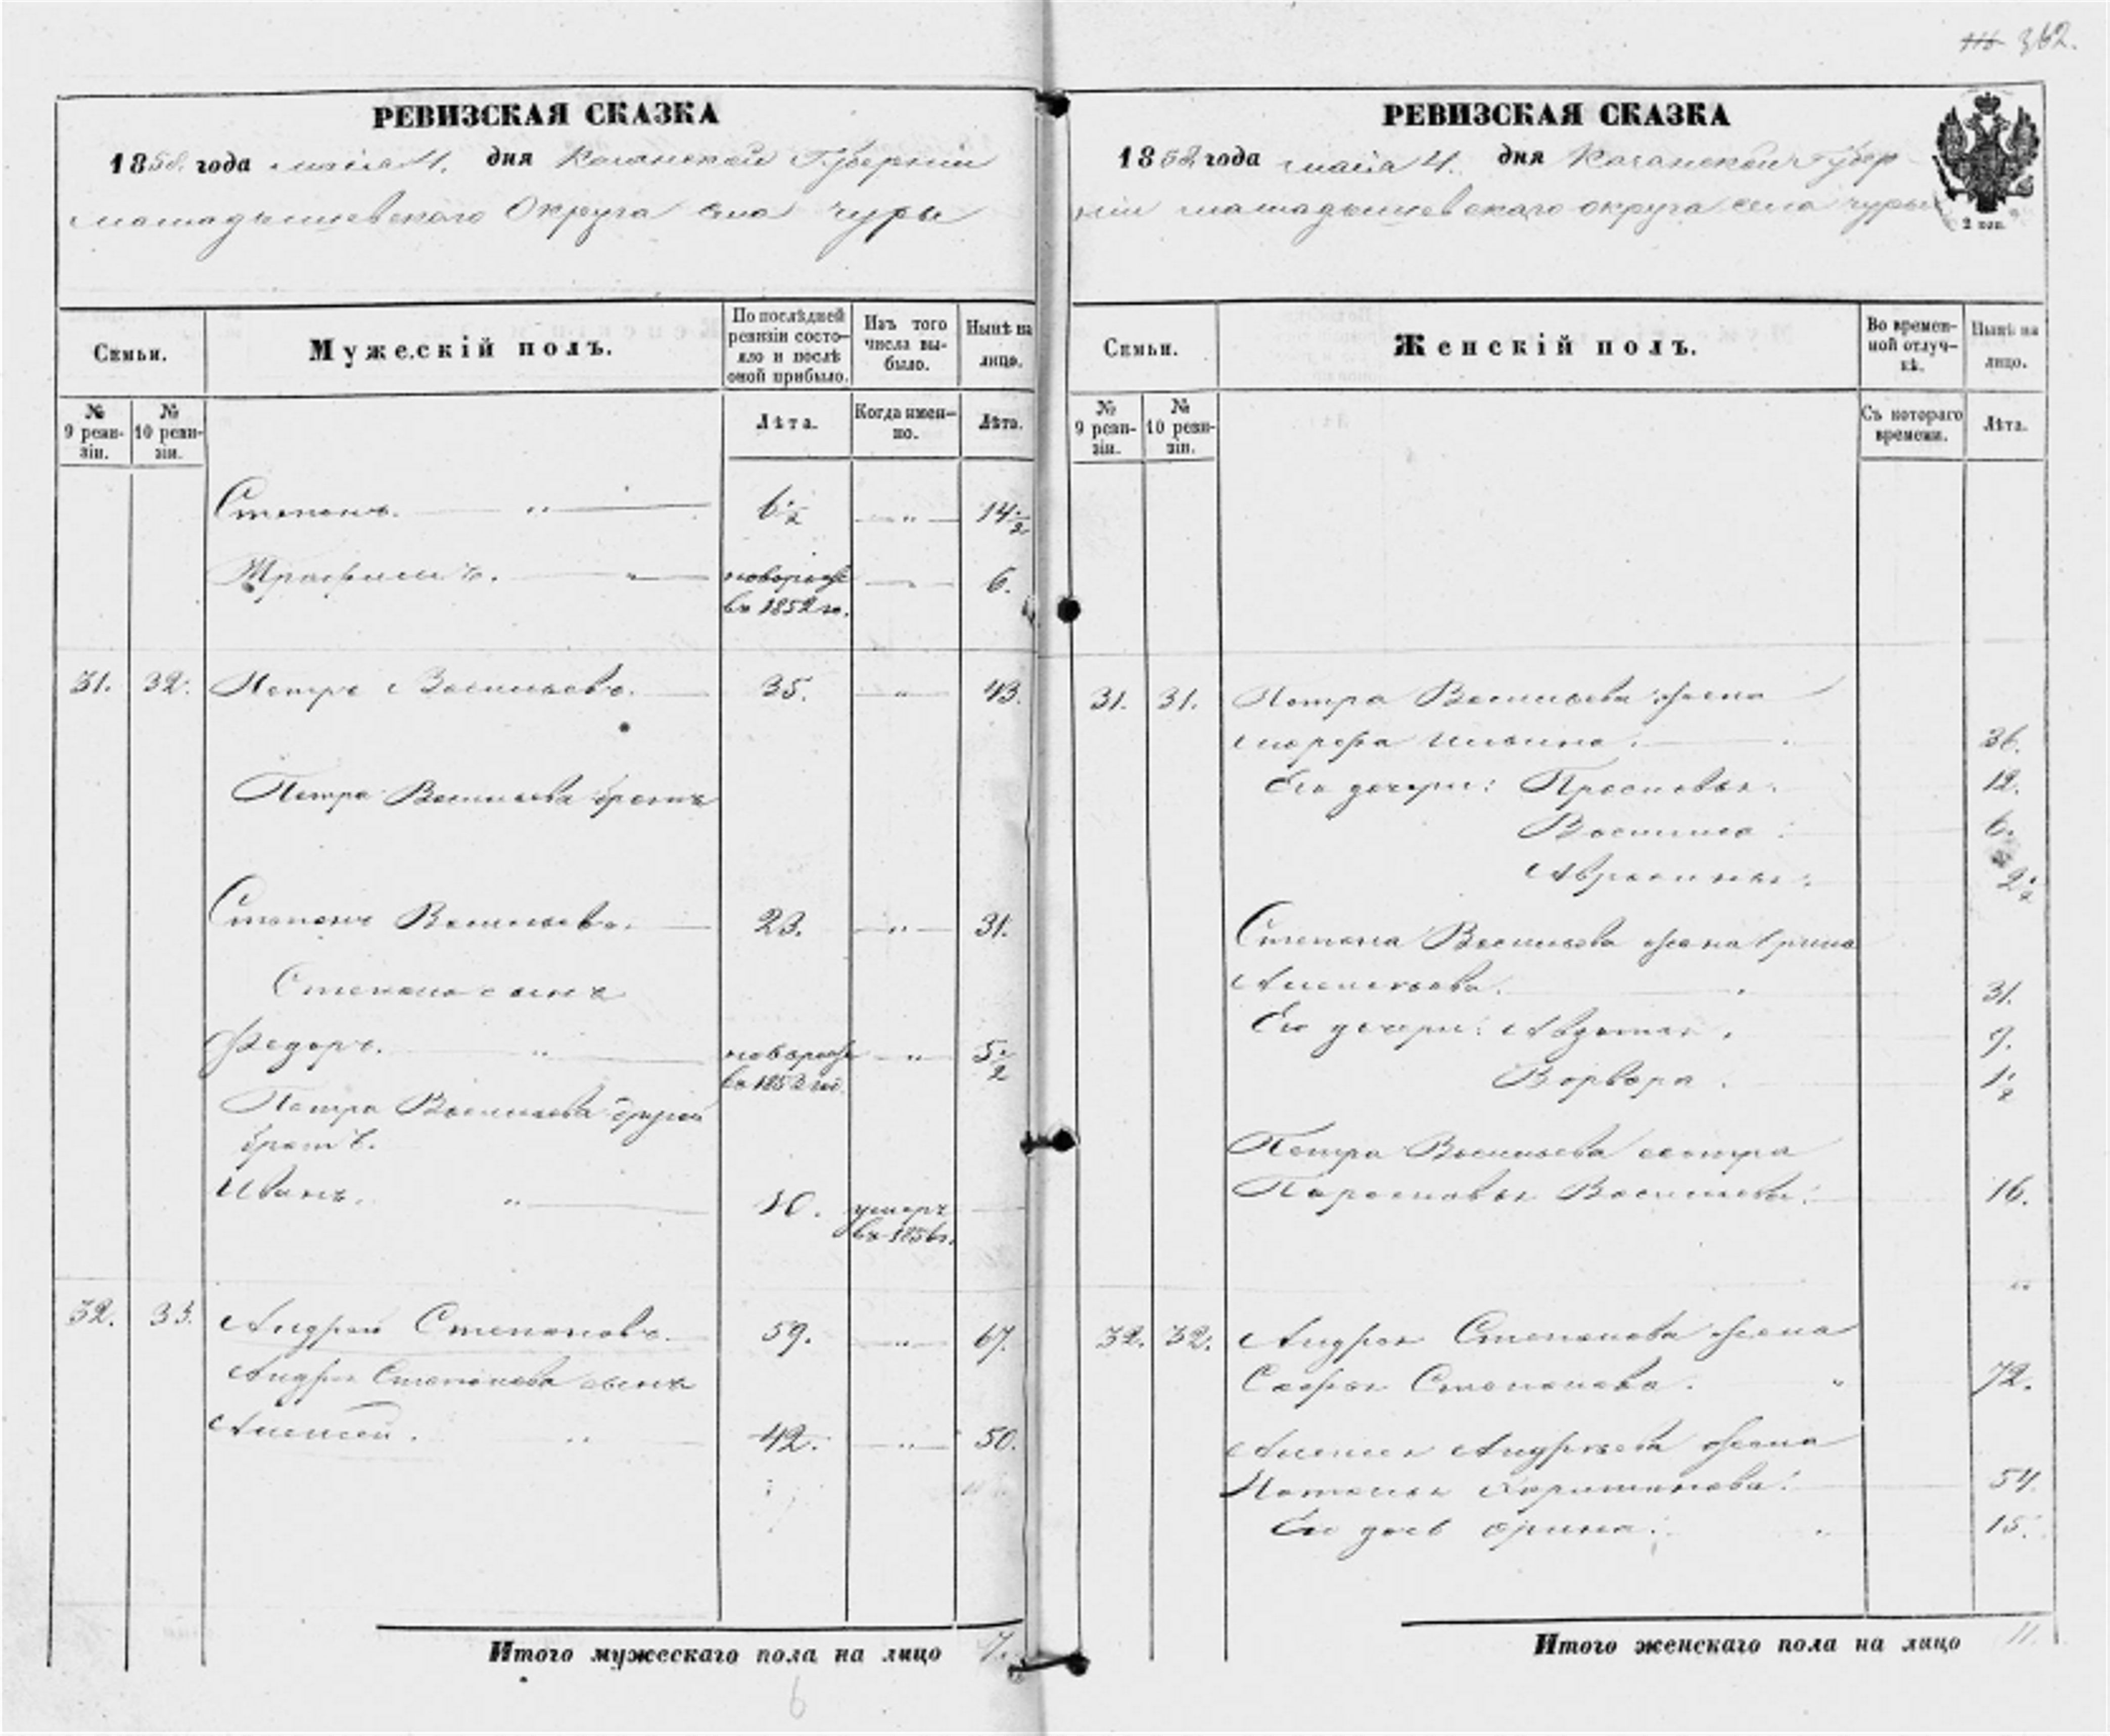 362.
РЕВИЗСКАЯ СКАЗКА
1858 года мaiя 4. дня Казанской Губернiи
мамадышевскаго Округа села чуры
Семьи.
Мужескій полъ.
По послѣдней ревизіи состояло и послѣ оной прибыло.
Изъ того числа выбыло.
Нынѣ на лицо.
№ 9 ревизіи.
№ 10 ревизіи.
Лѣта.
Когда именно.
Лѣта.
Степанъ. " 6 1/2 " 14 1/2
Трофимъ. " новорож " 6.
въ 1852 го.
31. 32. Петръ Васильевъ. 35. " 43.
Петра Васильева братъ
Степанъ Васильевъ. 23. " 31.
Степана сынъ
Федоръ. " новорож " 5 1/2
въ 1853 год
Петра Васильева другой
братъ.
Иванъ. " 10. умеръ
въ 1856 г.
32. 33. Андрей Степановъ. 59. " 67.
Андрея Степанова сынъ
Алексей. " 42. " 50.
Итого мужескаго пола на лицо 7.
6
РЕВИЗСКАЯ СКАЗКА
1858 года маiя 4. дня Казанской Губер
нiи мамадышевскаго округа села чуры
2 коп.
Семьи.
Женскій полъ.
Во временной отлучкѣ.
Нынѣ на лицо.
№ 9 ревизіи.
№ 10 ревизіи.
Съ котораго времени.
Лѣта.
31. 31. Петра Васильева жена
Ильина. 36.
Его дочери: Просковья. 12.
Василиса. 6.
Авросинья. 2 1/2
Степана Васильева жена Ирина
Алексеева. 31.
Его дочери: Авдотья. 9.
Варвара. 1 1/2
Петра Васильева сестра
Парасковья Васильева. 16.
"
32. 32. Андрея Степанова жена
Софья Степанова. " 72.
Алексея Андреева жена
Наталья 54.
Его дочь Орина. 15.
Итого женскаго пола на лицо 11.